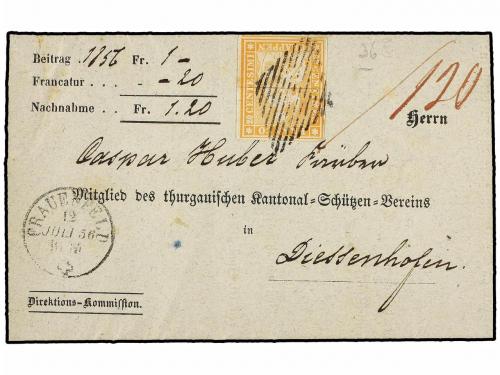 Beitrag . 1856 Fr. 1 -
Francatur . . . . - - 20
Nachnahme . . Fr. 1.20
20 CENTESIMI
RAPPEN
36
120
Herrn
Caspar Huber Färber
Mitglied des thurgauischen Kantonal-Schützen-Vereins
in
Diessenhofen.
FRAUENFELD
12
JULI 56
Direktions-Kommission.